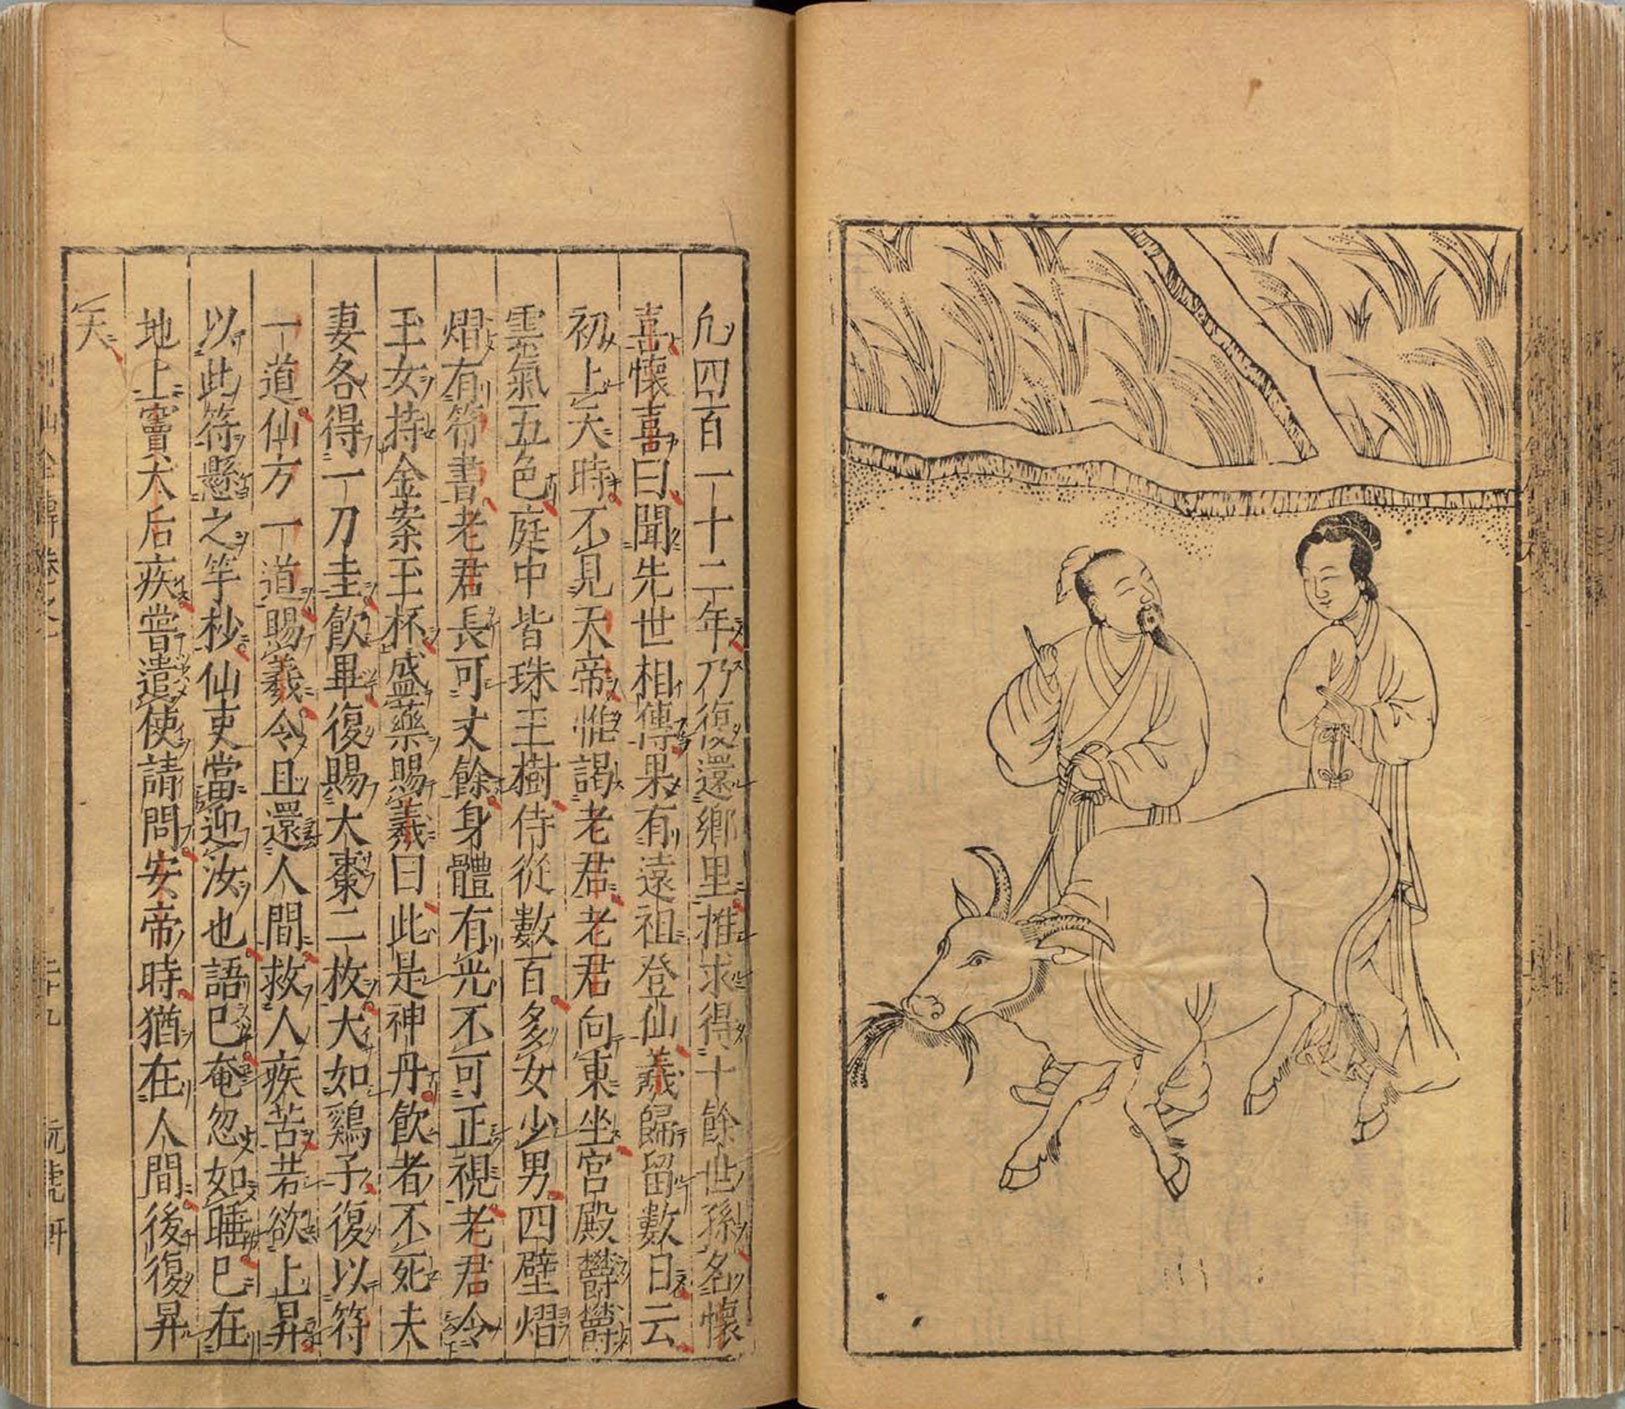 凢四百一十二年乃復還鄉里推求得十餘世孫名懷
喜懷喜曰聞先世相傳果有遠祖登仙義歸留數日云
初上天時不見天帝惟謁老君老君向東坐宮殿欝欝
雲氣五色庭中皆珠玉樹侍從數百多女少男四壁熠
熠有符書老君長可丈餘身體有光不可正視老君令
玉女持金案玉杯盛藥賜義曰此是神丹飲者不死夫
妻各得一刀圭飲畢復賜大棗二枚大如鷄子復以符
一道仙方一道賜義令且還人間救人疾苦若欲上昇
以此符懸之竿杪仙吏當迎汝也語已奄忽如睡已在
地上竇太后疾嘗遣使請問安帝時猶在人間後復昇
天